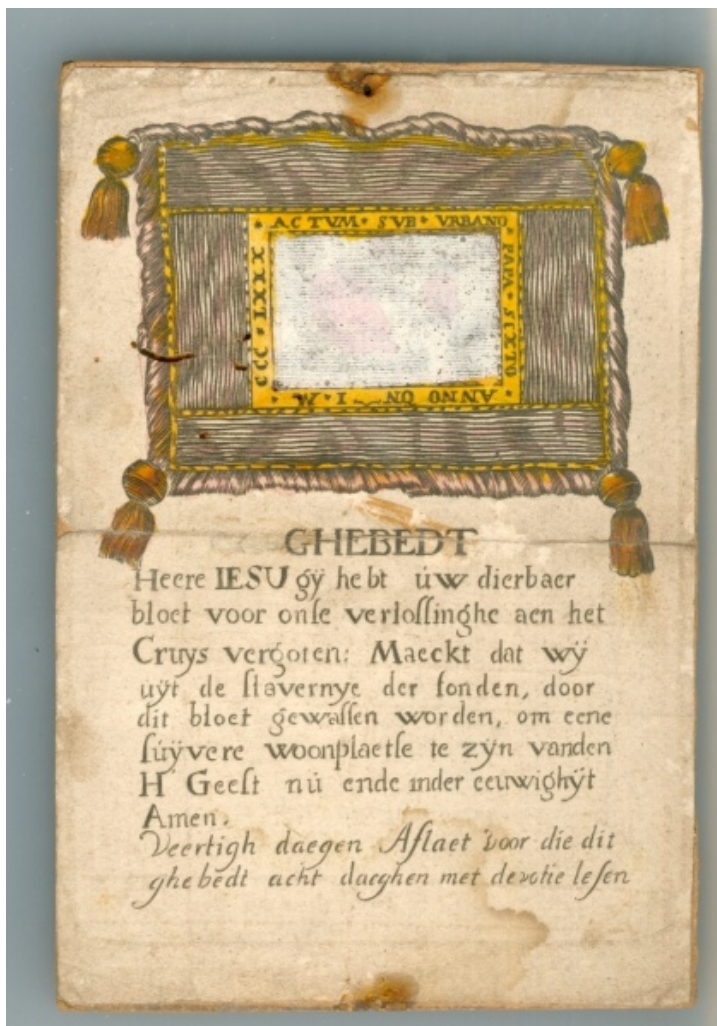 ACTVM SVB VRBANO
PAPA SIXTO
ANNO DN I. M.
CCC LXXX
GHEBEDT
Heere IESU gÿ hebt úw dierbaer
bloet voor onſe verloſſinghe aen het
Cruys vergoten: Maeckt dat wÿ
uÿt de ſlavernye der ſonden, door
dit bloet gewaſſen worden, om eene
ſúÿvere woonplaetſe te zÿn vanden
H Geeſt nú ende inder eeuwighÿt
Amen.
Veertigh daegen Aflaet voor die dit
ghebedt acht daeghen met devotie leſen